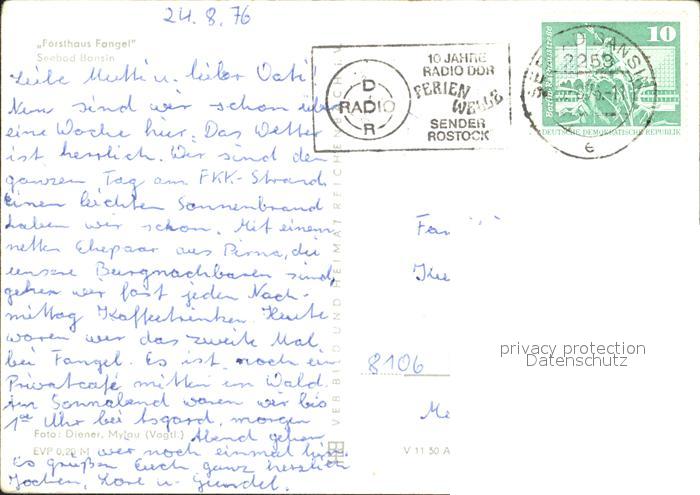 24.8.76
„Forsthaus Fangel"
Seebad Bansin
Liebe Mutti u. lieber Vati!
Nun sind wir schon über
eine Woche hier. Das Wetter
ist herrlich. Wir sind den
ganzen Tag am FKK-Strand
Einen leichten Sonnenbrand
haben wir schon. Mit einem
netten Ehepaar aus Pirna, die
unsere Burgnachbaren sind,
gehen wir fast jeden Nach-
mittag Kaffeetrinken. Heute
waren wir das zweite Mal
bei Fangel. Es ist noch ein
Privatcafé mitten im Wald.
Am Sonnabend waren wir bis
1 00 Uhr bei Asgard, morgen
Abend gehen
wir noch einmal hin.
Es grüßen Euch ganz herzlich
Jochen, Lore u. Gundel.
Foto: Diener, Mylau (Vogtl.)
EVP 0,20 M
VEB BILD UND HEIMAT REICHENBACH I. V.
V 11 50 A
10 JAHRE
RADIO DDR
FERIEN
WELLE
SENDER
ROSTOCK
D
RADIO
R
BANSIN
2253
10
DEUTSCHE DEMOKRATISCHE REPUBLIK
Fam
8106
privacy protection
Datenschutz